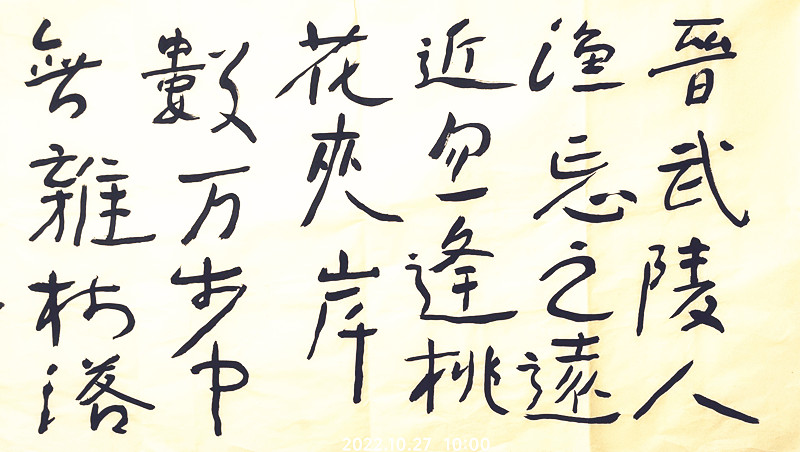 晉武陵人
渔忘之遠
近忽逢桃
花夾岸
數万步中
無雜树落
2022.10.27 10:00